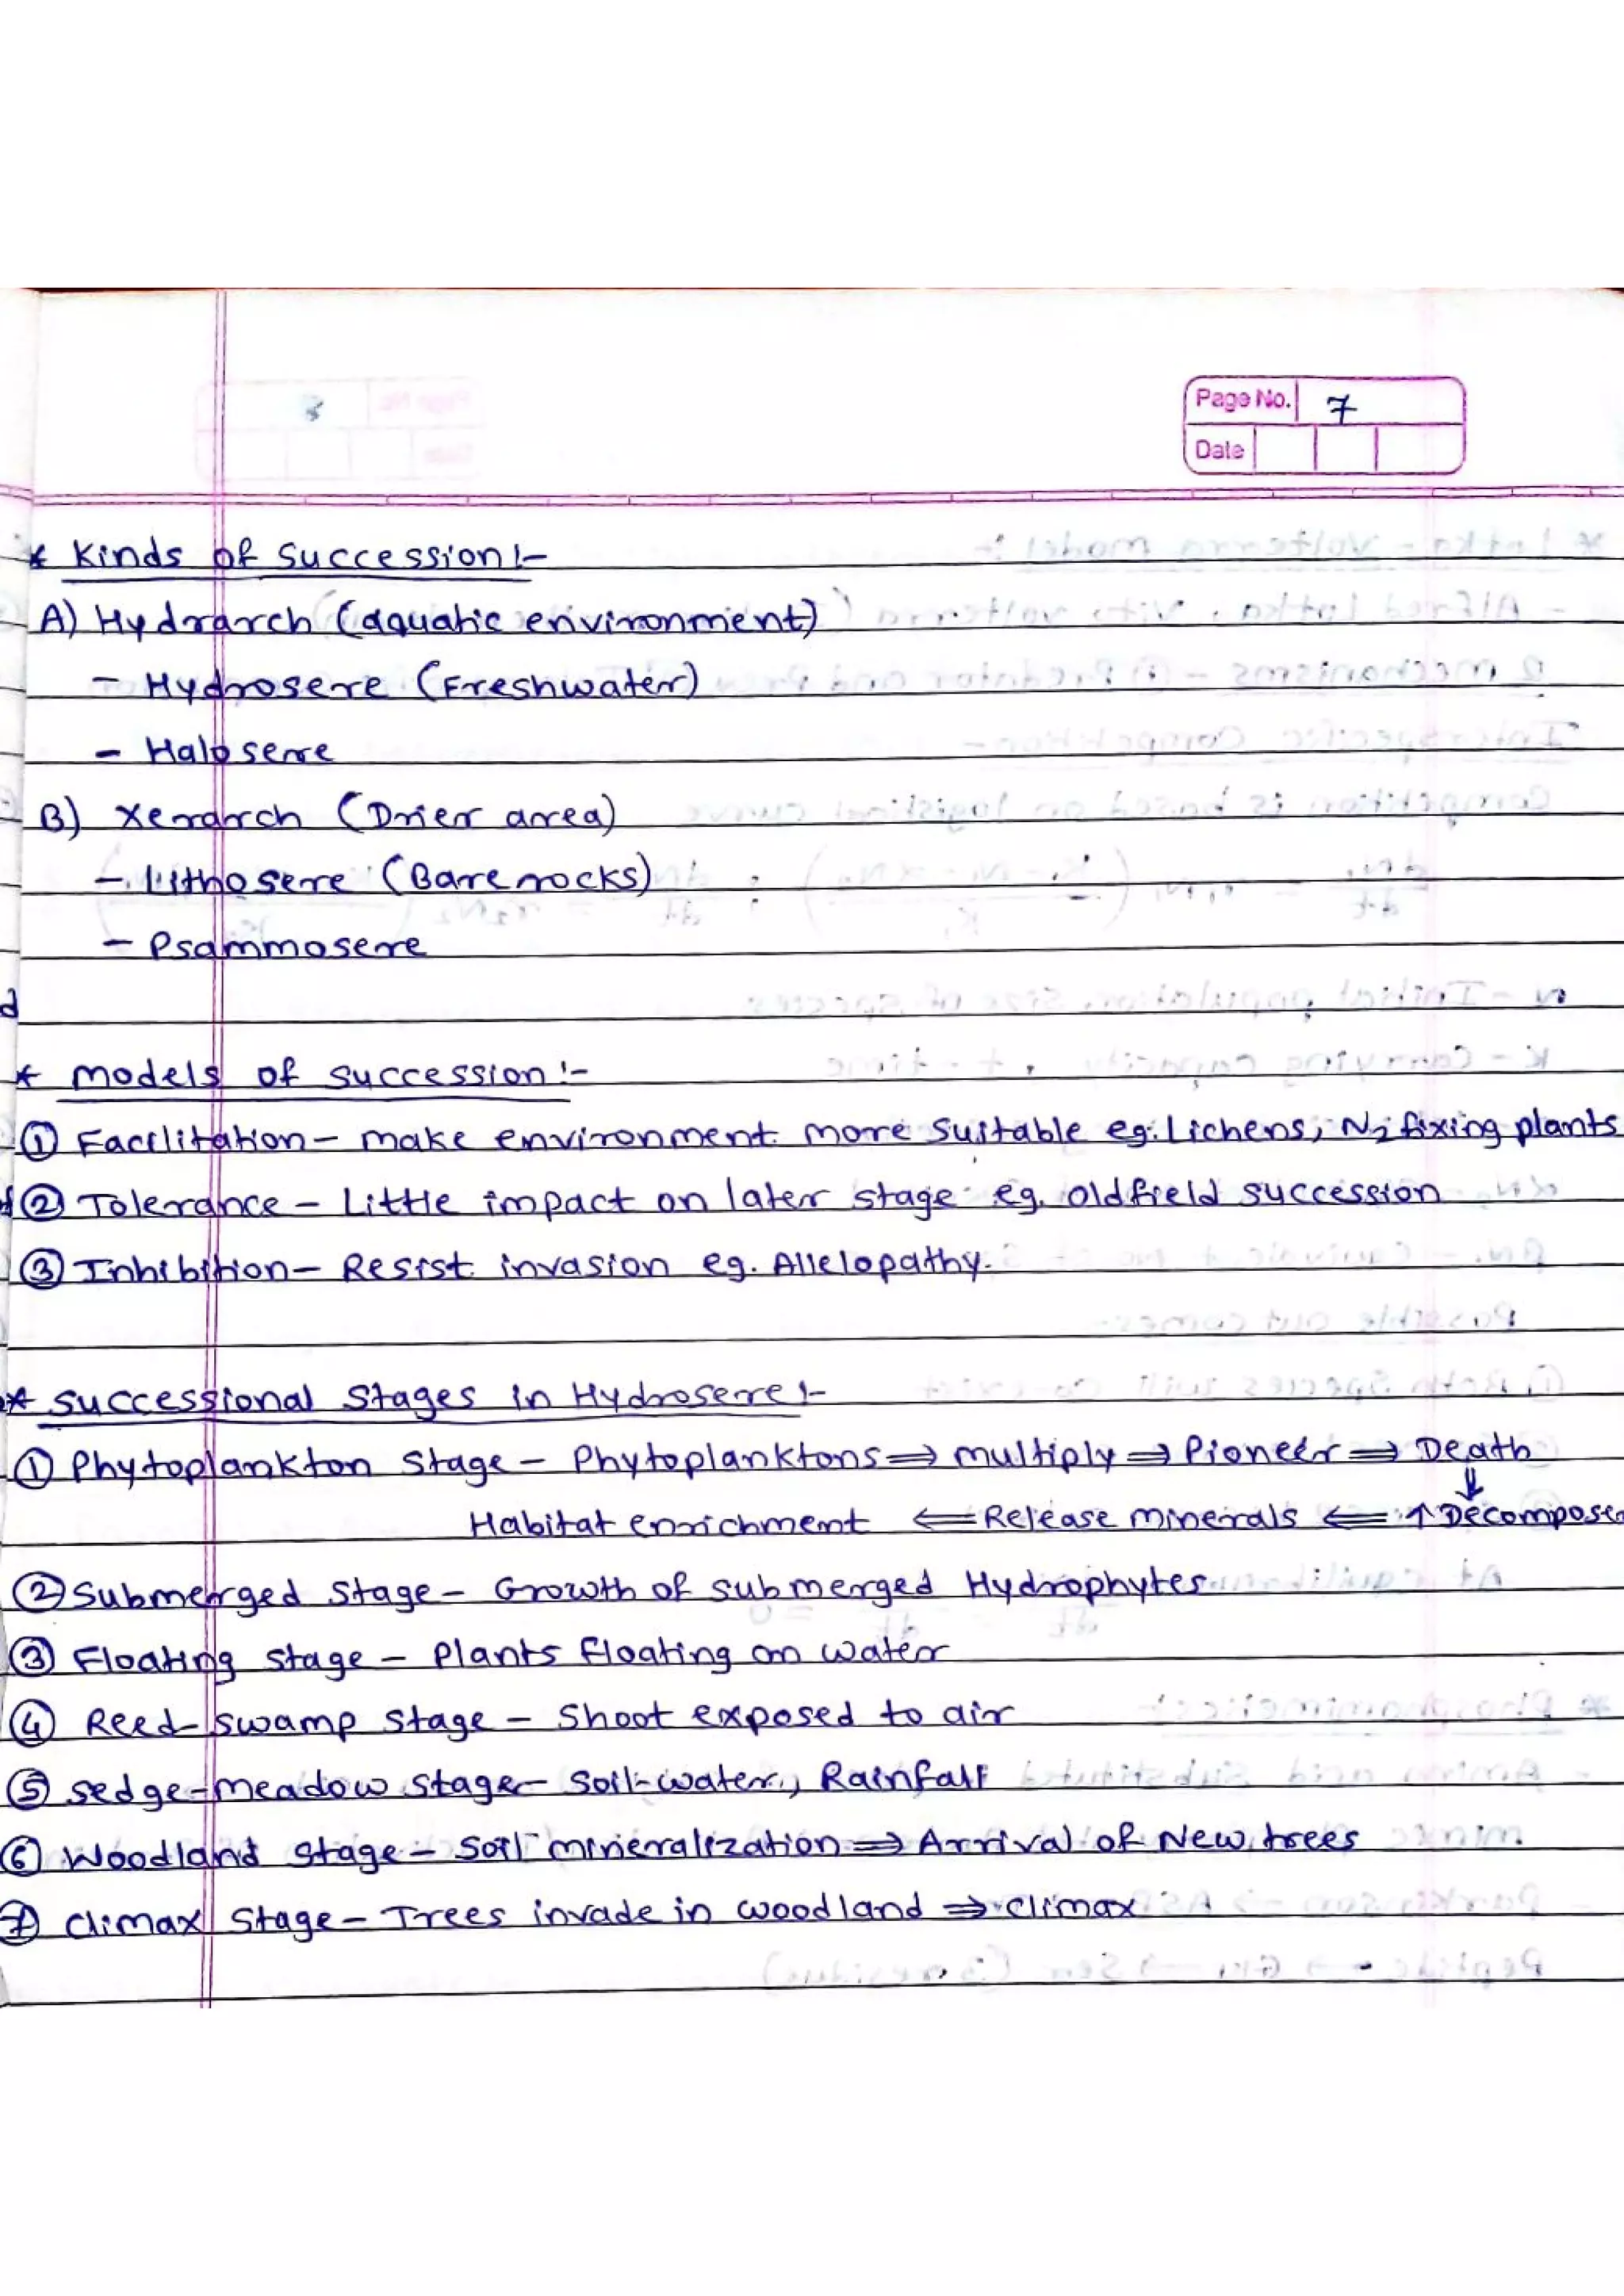 Page No. 7
Date
* Kinds of Succession:-
A) Hydrarch (aquatic environment)
- Hydrosere (Freshwater)
- Halosere
B) Xerarch (Drier area)
- Lithosere (Bare rocks)
- Psammosere
* Models of succession:-
① Facilitation - make environment more suitable eg. Lichens, N2 fixing plants
② Tolerance - Little impact on later stage eg. oldfield succession
③ Inhibition - Resist invasion eg. Allelopathy.
* Successional Stages in Hydrosere:-
① Phytoplankton Stage - Phytoplanktons ⇒ multiply ⇒ Pioneer ⇒ Death
⇓
Habitat enrichment ⇐ Release minerals ⇐ ↑Decompose
② Submerged Stage - Growth of submerged Hydrophytes
③ Floating stage - Plants floating on water
④ Reed-swamp stage - Shoot exposed to air
⑤ Sedge-meadow stage - Soil-water, Rainfall
⑥ Woodland stage - Soil mineralization ⇒ Arrival of New trees
⑦ Climax stage - Trees invade in woodland ⇒ climax